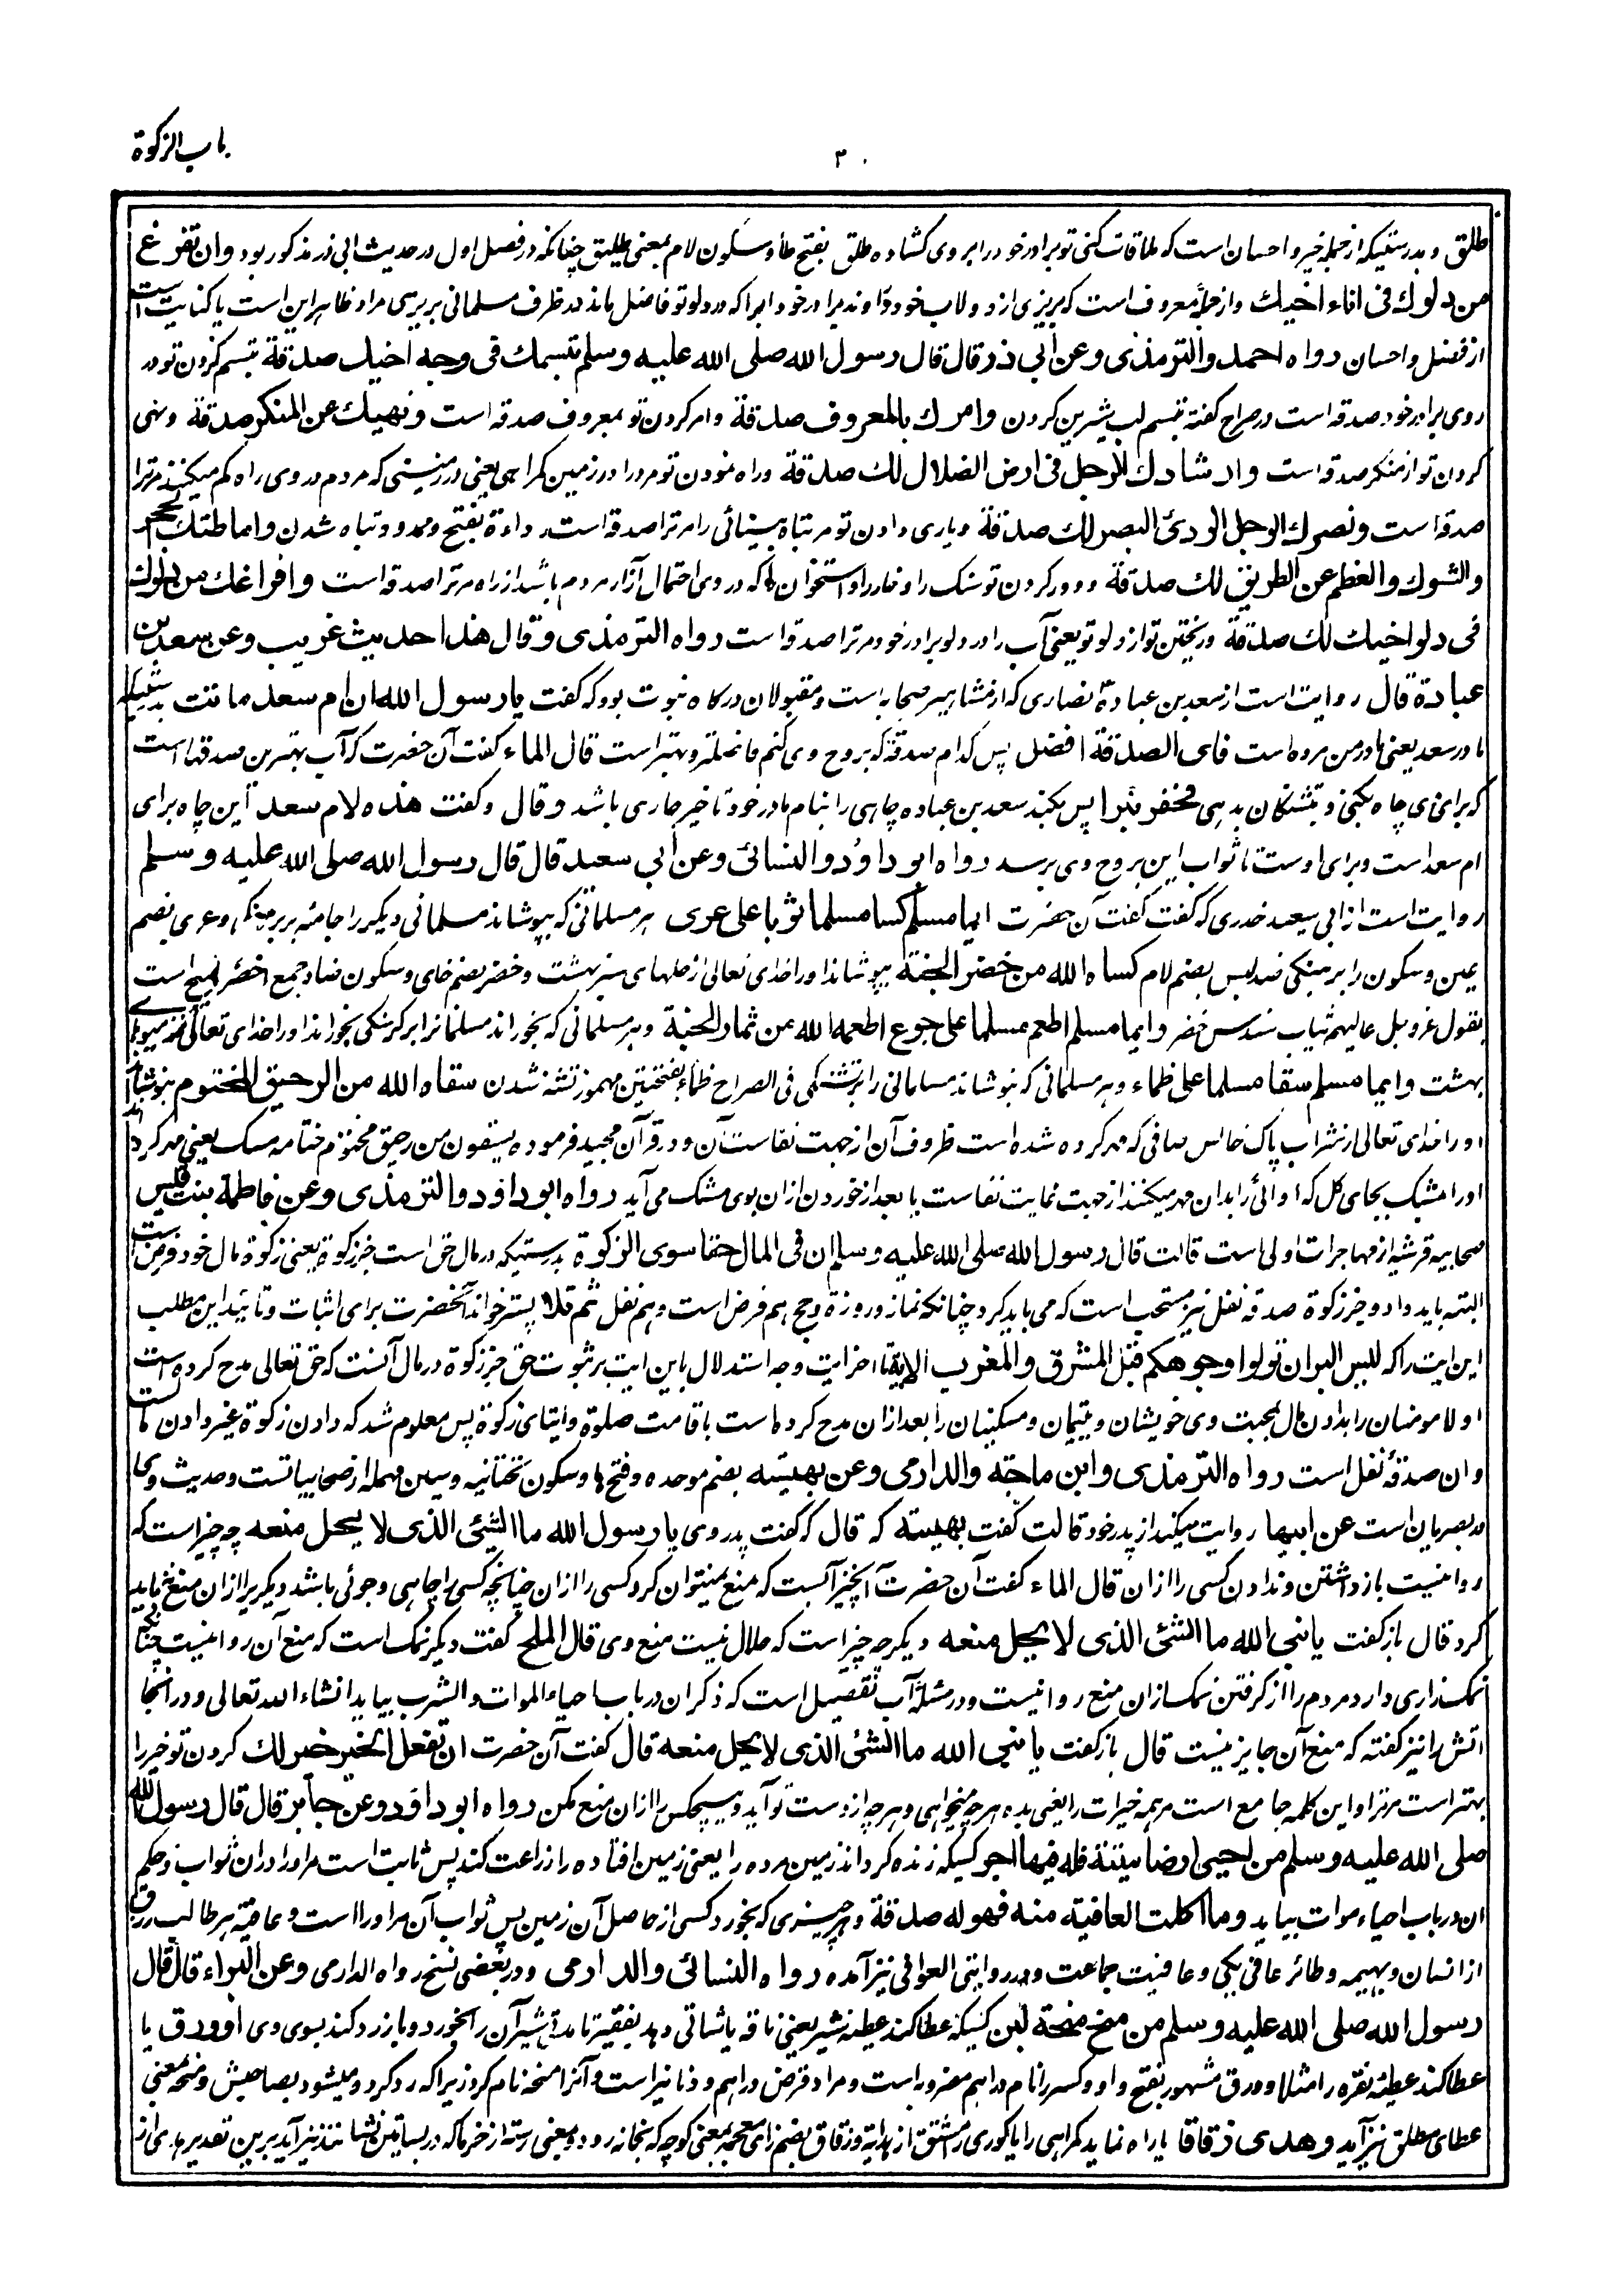 باب الزکوة
۳۰
طلق و بدرستیکه از جمله خیر و احسان است که ملاقات کنی تو برادر خود را بروی کشاده طلق بفتح طا و سکون لام بمعنی طلیق چنانکه در فصل اول در حدیث ابی ذر مذکور بود وان تفرغ
من دلوك فی اناء اخیك و از جمله معروف است که بریزی از دولاب خود در آوند برادر خود آبرا که در دلو تو فاضل ماند در ظرف مسلمانی بریزی مراد ظاهر این است یا کنایت است
از فضل و احسان رواه احمد والترمذی وعن ابی ذر قال قال رسول الله صلی الله علیه وسلم تبسمك فی وجه اخیك صدقة تبسم کردن تو در
روی برادر خود صدقه است در صراح گفته تبسم لب شیرین کردن وامرك بالمعروف صدقة و امر کردن تو بمعروف صدقه است ونهیك عن المنکر صدقة و نهی
کردن تو از منکر صدقه است وارشادك الرجل فی ارض الضلال لك صدقة و راه نمودن تو مرد را در زمین گمراهی یعنی در زمینی که مردم در وی راه گم میکنند مر ترا
صدقه است ونصرك الرجل الردئ البصر لك صدقة و یاری دادن تو مر تباه بینائی را مر ترا صدقه است رداءة بفتح و مد و تباه شدن واماطتك الحجر
والشوك والعظم عن الطریق لك صدقة و دور کردن تو سنگ را و خار را و استخوان را که در وی احتمال آزار مردم باشد از راه مر ترا صدقه است وافراغك من دلوك
فی دلو اخیك لك صدقة و ریختن تو از دلو تو یعنی آب را در دلو برادر خود مر ترا صدقه است رواه الترمذی وقال هذا حدیث غریب وعن سعد بن
عبادة قال روایت است از سعد بن عبادة انصاری که از مشاهیر صحابه است و مقبولان درگاه نبوت بود که گفت یا رسول الله ان ام سعد ماتت بدرستیکه
مادر سعد یعنی مادر من مرده است فای الصدقة افضل پس کدام صدقه که بروح وی کنم فاضلتر و بهتر است قال الماء گفت آن حضرت که آب بهترین صدقها است
که برای وی چاه بکنی و بتشنگان بدهی فحفر بئرا پس بکند سعد بن عباده چاهی را بنام مادر خود تا خیر جاری باشد وقال و گفت هذه لام سعد این چاه برای
ام سعد است و برای اوست تا ثواب این بروح وی برسد رواه ابو داؤد والنسائی وعن ابی سعید قال قال رسول الله صلی الله علیه وسلم
روایت است از ابی سعید خدری که گفت گفت آن حضرت ایما مسلم کسا مسلما ثوبا علی عری هر مسلمانی که بپوشاند مسلمانی دیگر را جامه بر برهنگی و عری بضم
عین و سکون را برهنگی ضد لبس بضم لام کساه الله من خضر الجنة بپوشاند او را خدای تعالی از حلهای سبز بهشت و خضر بضم خای و سکون ضاد جمع اخضر
بقول عز و جل عالیهم ثیاب سندس خضر وایما مسلم اطعم مسلما علی جوع اطعمه الله من ثمار الجنة و هر مسلمانی که بخوراند مسلمانرا بر گرسنگی بخوراند او را خدای تعالی از میوهای
بهشت وایما مسلم سقا مسلما علی ظماء و هر مسلمانی که بنوشاند مسلمانی را بر تشنگی فی الصراح ظماء بفتحتین مهموز تشنه شدن سقاه الله من الرحیق المختوم بنوشاند
او را خدای تعالی از شراب پاک خالص صافی که مهر کرده شده است ظروف آن از جهت نفاست آن و در قرآن مجید فرموده یسقون من رحیق مختوم ختامه مسک یعنی مهر کرد
او را مشک بجای گل که اوانی را بدان مهر میکنند از جهت غایت نفاست یا بعد از خوردن ازان بوی مشک می آید رواه ابو داود والترمذی وعن فاطمة بنت قیس
صحابیه قرشیه از مهاجرات اولی است قالت قال رسول الله صلی الله علیه وسلم ان فی المال حقا سوی الزکوة بدرستیکه در مال حق است جز زکوة یعنی زکوة مال خود فرض است
البته باید داد و جز زکوة صدقه نفل نیز مستحب است که می باید کرد چنانکه نماز و روزه و حج هم فرض است و هم نفل ثم تلا پستر خواند آنحضرت برای اثبات و تائید این مطلب
این ایت را که لیس البر ان تولوا وجوهکم قبل المشرق والمغرب الایة تا اخر ایت وجه استدلال باین ایت بر ثبوت حق جز زکوة در مال آنست که حق تعالی مدح کرده است
اولا مومنان را بدادن مال بمحبت وی خویشان و یتیمان و مسکینان را بعد ازان مدح کرده است باقامت صلوة و ایتای زکوة پس معلوم شد که دادن زکوة غیر دادن مال است
و ان صدقه نفل است رواه الترمذی وابن ماجة والدارمی وعن بهیسه بضم موحده و فتح ها و سکون تحتانیه و سین مهمله از صحابیاتست و حدیث وی
در بصریان است عن ابیها روایت میکند از پدر خود قالت گفت بهیسه که قال که گفت پدر وی یا رسول الله ما الشئ الذی لا یحل منعه چه چیز است که
روا نیست باز داشتن و ندادن کسی را ازان قال الماء گفت آن حضرت آن چیز آبست که منع نمیتوان کرد کسی را ازان چنانچه کسی را چاهی و جوئی باشد دیگریرا ازان منع نباید
کرد قال باز گفت یا نبی الله ما الشئ الذی لا یحل منعه دیگر چه چیز است که حلال نیست منع وی قال الملح گفت دیگر نمک است که منع آن روا نیست چنانکه
نمکزاری دارد مردم را از گرفتن نمک ازان منع روا نیست و در مسئله آب تفصیل است که ذکر ان در باب احیاء الموات والشرب بیاید انشاء الله تعالی و در انجا
اتش را نیز گفته که منع آن جایز نیست قال باز گفت یا نبی الله ما الشئ الذی لا یحل منعه قال گفت آن حضرت ان تفعل الخیر خیر لك کردن تو خیر را
بهتر است مر ترا و این کلمه جامع است مر همه خیرات را یعنی بده هر چه میخواهی و هر چه از دست تو آید و هیچکس را ازان منع مکن رواه ابو داود وعن جابر قال قال رسول الله
صلی الله علیه وسلم من احیی ارضا میتة فله فیها اجر کسیکه زنده کرداند زمین مرده را یعنی زمین افتاده را زراعت کند پس ثابت است مر او را دران ثواب و حکم
ان در باب احیاء موات بیاید وما اکلت العافیة منه فهو له صدقة و هر چیزی که بخورد کسی از حاصل آن زمین پس ثواب آن مر او را است و عافیة هر طالب رزق
از انسان و بهیمه و طائر عافی یکی و عافیت جماعت و در روایتی العوافی نیز آمده رواه النسائی والدارمی و در بعضی نسخ رواه الدارمی وعن البراء قال قال
رسول الله صلی الله علیه وسلم من منح منحة لبن کسیکه عطا کند عطیه شیر یعنی ناقه یا شاتی دهد بفقیر تا مدة شیر آن را بخورد و باز رد کند بسوی وی او ورق یا
عطا کند عطیه نقره را مثلا و ورق مشهور بفتح واو و کسر را نام دراهم مضروبه است و مراد قرض دراهم و دنانیر است و آنرا منحه نام کرد زیرا که رد کرده میشود بصاحبش و منحه بمعنی
عطای مطلق نیز آید وهدی زقاقا یا راه نماید گمراهی را یا کوری را مشتق از هدایة و زقاق بضم زای معجمه بمعنی کوچه که بخانه رود و بمعنی رسته از خرما که در بساتین نشانند نیز آید برین تقدیر هدی از